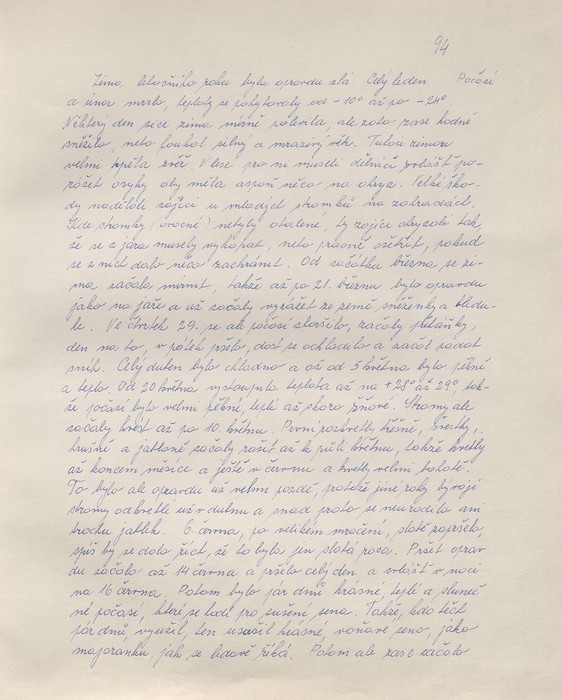 94
Zima letošního roku byla opravdu zlá. Celý leden Počasí
a únor mrzlo, teploty se pohybovaly od -10° až po -24°.
Některý den sice zima méně polevila, ale zato zase hodně
sněžilo, nebo foukal silný a mrazivý vítr. Tuhou zimou
velmi trpěla zvěř. V lese pro ni museli dělníci zvláště po-
rážet osyky aby měla aspoň něco na okrz. Velké ško-
dy nadělali zajíci u mladých stromků na zahradách.
Kde stromky (ovocné) nebyly obalené, ty zajíci okrouzali tak,
že se z jara musely vykopat, nebo pracně ošetřit, pokud
se z nich dalo něco zachránit. Od začátku března se zi-
ma začala mírnit, takže až po 21. březnu bylo opravdu
jako na jaře a už začaly vyrážet ze země sněženky a bledu-
le. Ve čtvrtek 29. se ale počasí zhoršilo, začaly plískanky,
den na to, v pátek pršelo, dost se ochladilo a začal padat
sníh. Celý duben bylo chladno a až od 5 května bylo pěkně
a teplo. Od 20 května vystoupila teplota až na +28° až 29°, tak-
že počasí bylo velmi pěkné, teplé až skoro žňové. Stromy ale
začaly kvést až po 10 květnu. První rozkvetly třešně, švestky,
hrušně a jabloně začaly rašit až k půli květnu, takže kvetly
až koncem měsíce a ještě v červnu a kvetly velmi bohatě.
To bylo ale opravdu už velmi pozdě, protože jiné roky bývají
stromy odkvetlé už v dubnu a snad proto se neurodilo ani
trochu jablek. 6. června, po velikém mračení, slabě zapršelo,
spíš by se dalo říct, že to byla jen slabá rosa. Pršet oprav-
du začalo až 14 června a pršelo celý den a zvlášť v noci
na 16 června. Potom bylo pár dnů krásné, teplé a sluneč-
né počasí, které se hodí pro sušení sena. Takže, kdo těch
pár dnů, využil, ten usušil krásné, voňavé seno, jako
majoránku, jak se lidově říká. Potom ale zase začalo